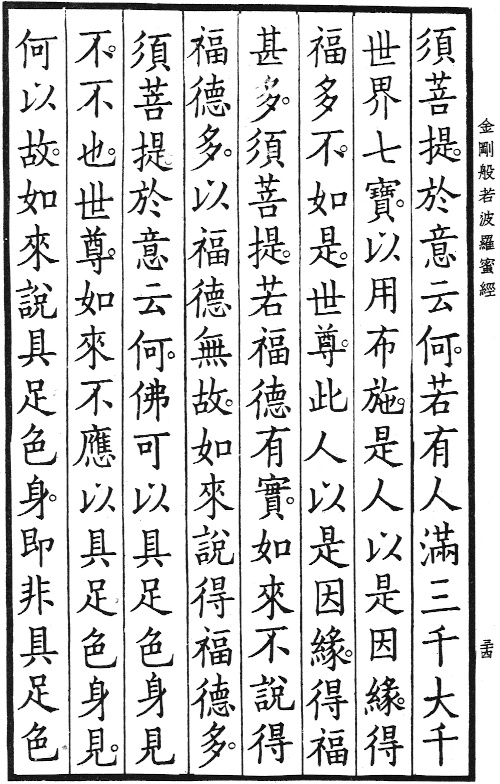 金剛般若波羅蜜經
三四
須菩提。於意云何。若有人滿三千大千
世界七寶。以用布施。是人以是因緣。得
福多不。如是。世尊。此人以是因緣。得福
甚多。須菩提。若福德有實。如來不說得
福德多。以福德無故。如來說得福德多。
須菩提於意云何。佛可以具足色身見
不。不也。世尊。如來不應以具足色身見。
何以故。如來說具足色身。即非具足色